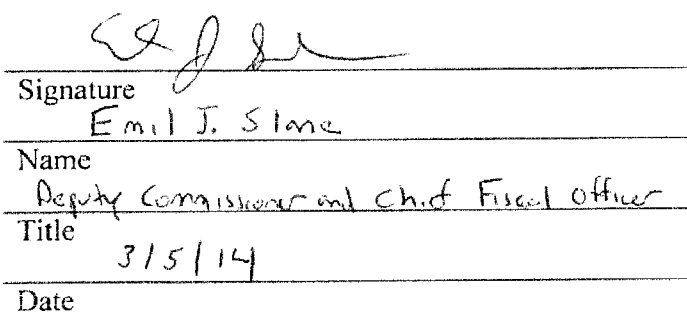 Signature
Emil J. Slane
Name
Deputy Commissioner and Chief Fiscal Officer
Title
3/5/14
Date